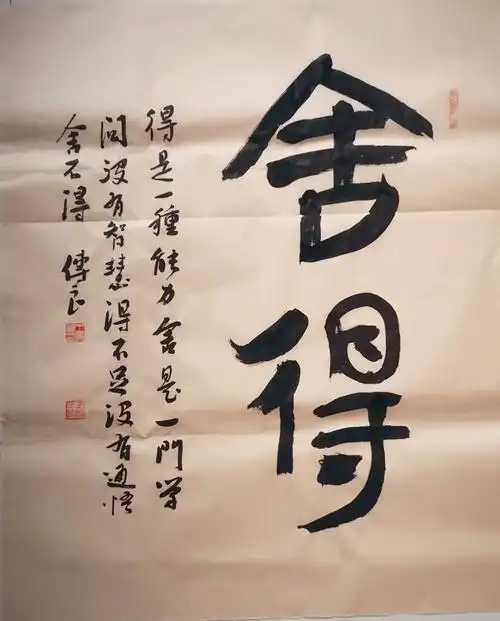 舍得
得是一種能力舍是一門学
问没有智慧得不足没有通悟
舍不得 傳良